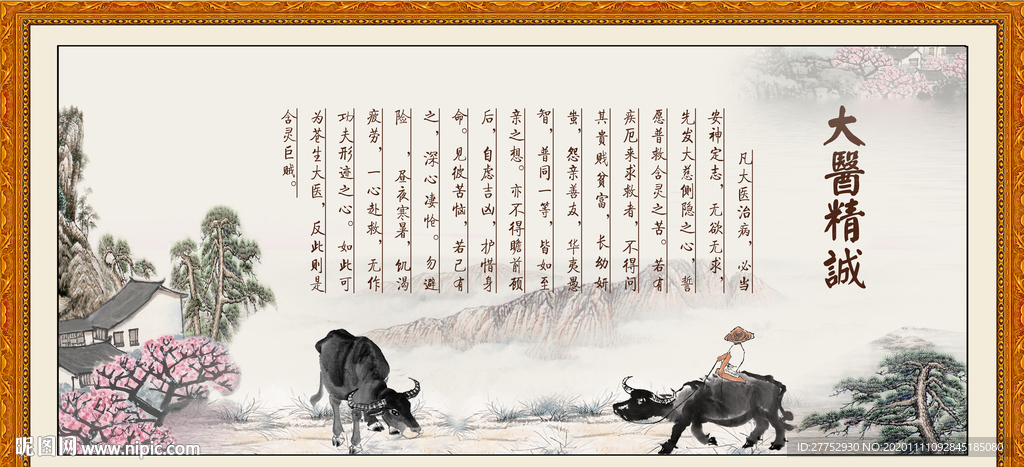 大醫精誠
凡大医治病，必当
安神定志，无欲无求，
先发大慈恻隐之心，誓
愿普救含灵之苦。若有
疾厄来求救者，不得问
其貴贱貧富，长幼妍
蚩，怨亲善友，华夷愚
智，普同一等，皆如至
亲之想。亦不得瞻前顾
后，自虑吉凶，护惜身
命。见彼苦恼，若己有
之，深心凄怆。勿避
险，昼夜寒暑，饥渴
疲劳，一心赴救，无作
功夫形迹之心。如此可
为苍生大医，反此则是
含灵巨贼。
昵图网 www.nipic.com
ID:27752930 NO:20201111092845185080